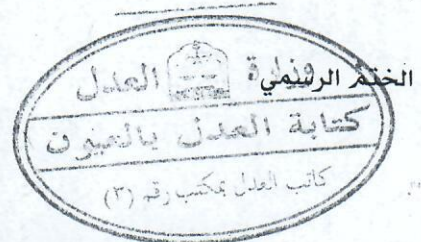 الختم الرسمي
وزارة العدل
كتابة العدل بالعيون
كاتب العدل بمكتب رقم (٣)